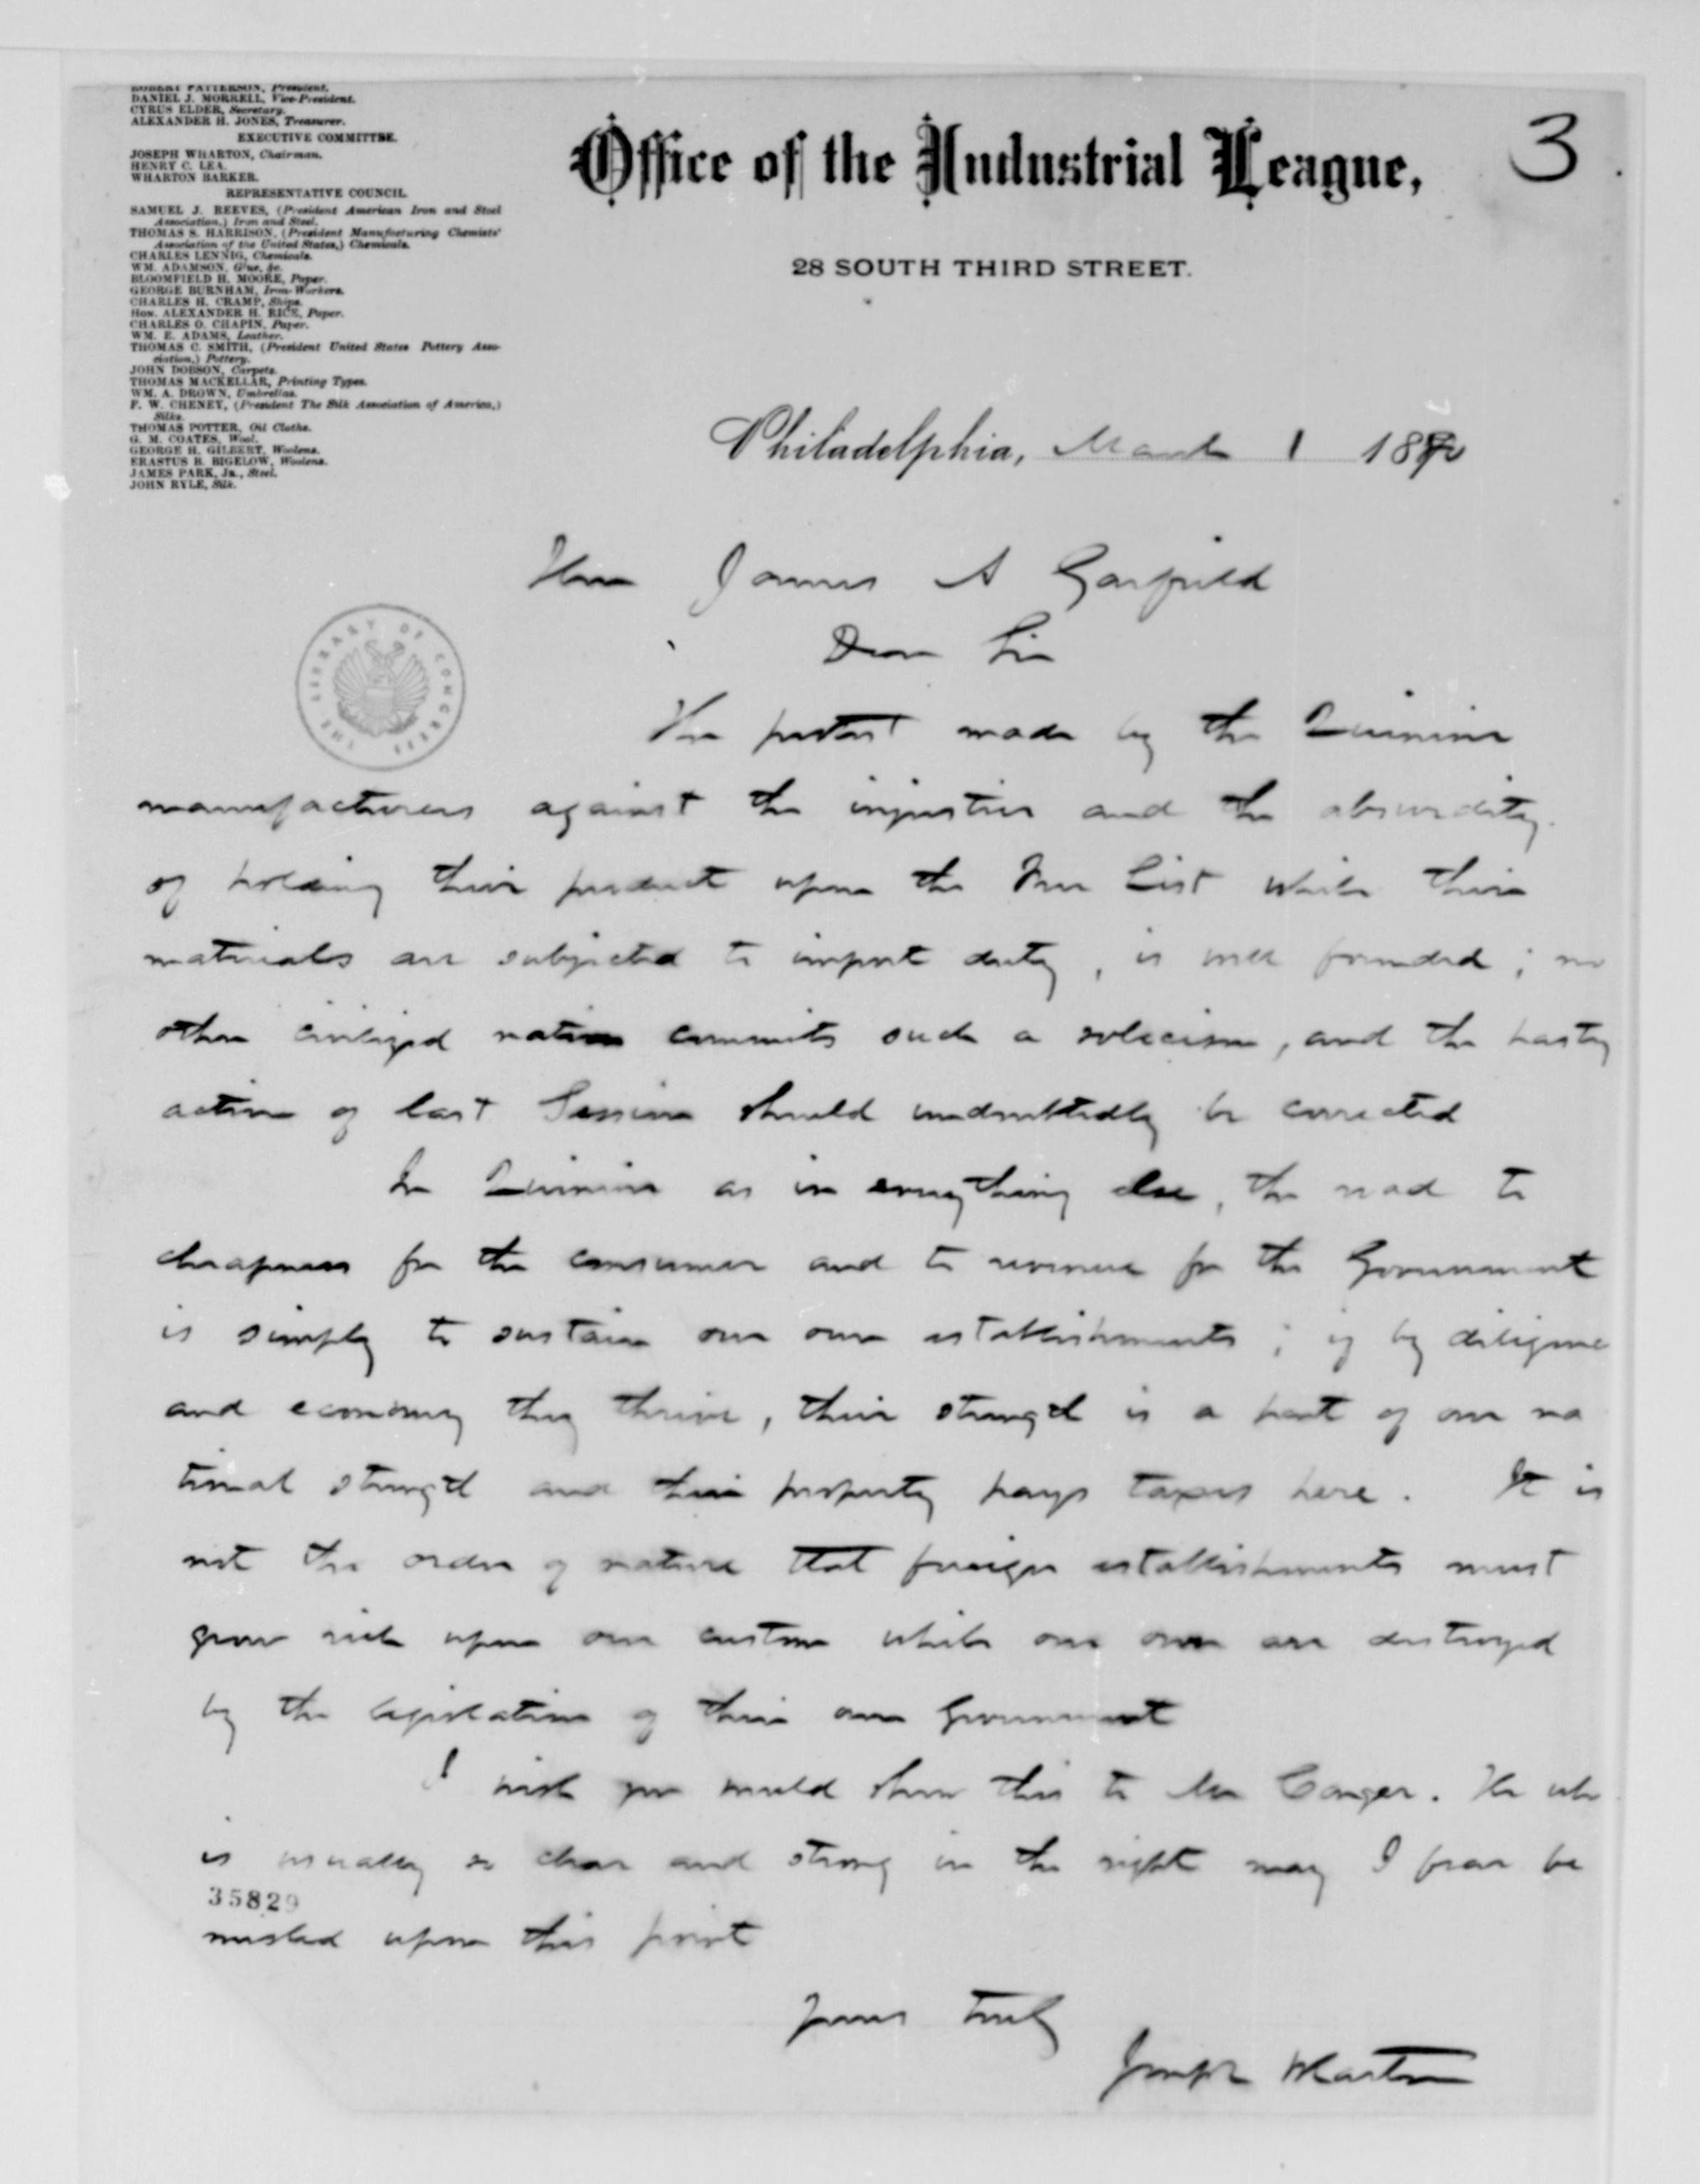 ROBERT PATTERSON, President.
DANIEL J. MORRELL, Vice-President.
CYRUS ELDER, Secretary.
ALEXANDER H. JONES, Treasurer.
EXECUTIVE COMMITTEE.
JOSEPH WHARTON, Chairman.
HENRY C. LEA.
WHARTON BARKER.
REPRESENTATIVE COUNCIL.
SAMUEL J. REEVES, (President American Iron and Steel
Association,) Iron and Steel.
THOMAS S. HARRISON, (President Manufacturing Chemists'
Association of the United States,) Chemicals.
CHARLES LENNIG, Chemicals.
WM. ADAMSON, Glue, &c.
BLOOMFIELD H. MOORE, Paper.
GEORGE BURNHAM, Iron-Workers.
CHARLES H. CRAMP, Ships.
Hon. ALEXANDER H. RICE, Paper.
CHARLES O. CHAPIN, Paper.
WM. E. ADAMS, Leather.
THOMAS C. SMITH, (President United States Pottery Asso-
ciation,) Pottery.
JOHN DOBSON, Carpets.
THOMAS MACKELLAR, Printing Types.
WM. A. DROWN, Umbrellas.
F. W. CHENEY, (President The Silk Association of America,)
Silks.
THOMAS POTTER, Oil Cloths.
G. M. COATES, Wool.
GEORGE H. GILBERT, Woolens.
ERASTUS B. BIGELOW, Woolens.
JAMES PARK, Jr., Steel.
JOHN RYLE, Silk.
Office of the Industrial League,
3
28 SOUTH THIRD STREET.
Philadelphia, March 1 1880
Hon James A Garfield
Dear Sir
THE LIBRARY OF CONGRESS
The protest made by the Quinine
manufacturers against the injustice and the absurdity
of holding their product upon the Free List while their
materials are subjected to import duty, is well founded; no
other civilized nation commits such a solecism, and the hasty
action of last Session should undoubtedly be corrected
In Quinine as in everything else, the road to
cheapness for the consumer and to revenue for the Government
is simply to sustain our own establishments; if by diligence
and economy they thrive, their strength is a part of our na
tional strength and their property pays taxes here. It is
not the order of nature that foreign establishments must
grow rich upon our custom while our own are destroyed
by the legislation of their own Government
I wish you would show this to Mr Conger. He who
is usually so clear and strong in the right may I fear be
35829
misled upon this point
Yours truly
Joseph Wharton